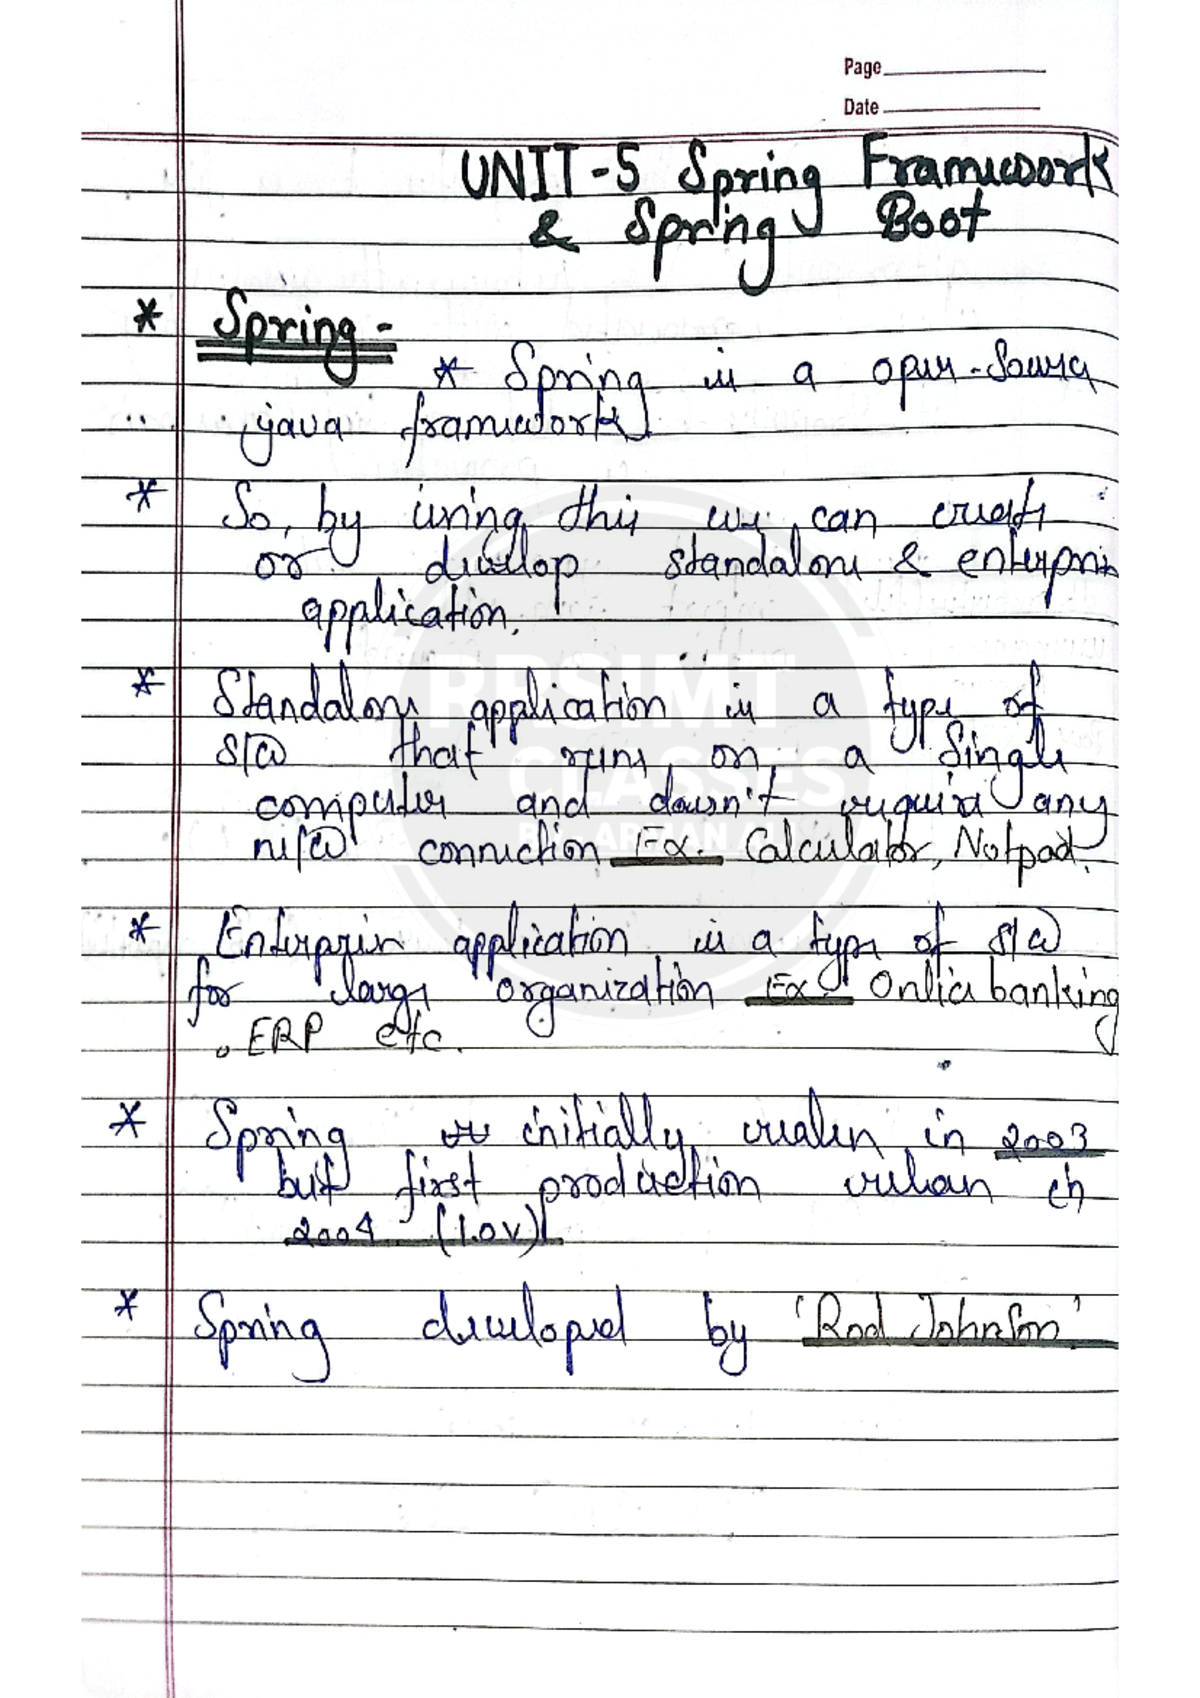 Page
Date
UNIT-5 Spring Framework
& Spring Boot
* Spring -
* Spring is a open-source
java framework.
* So, by using this we can create
or develop standalone & enterprise
application.
* Standalone application is a type of
s/w that runs on a single
computer and doesn't require any
n/w connection Ex- Calculator, Notpad.
* Enterprise application is a type of s/w
for large organization Ex- Onlice banking
, ERP etc.
* Spring initially realse in 2003
but first production release in
2004 (1.0v)
* Spring developed by 'Rod Johnson'
RRSIMT
CLASSES
BY- ARMAN ALI